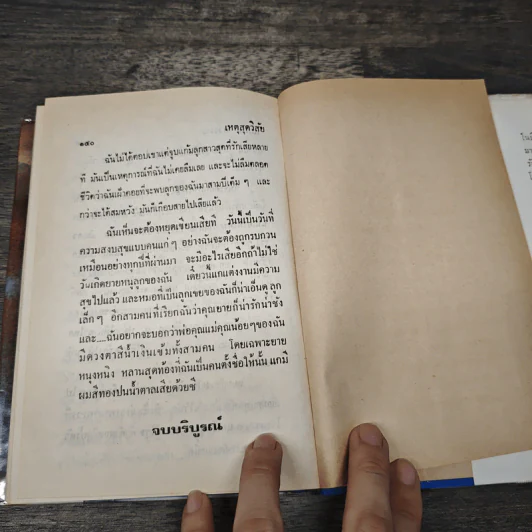 เหตุสุดวิสัย
๑๙๐
ฉันไม่ได้ตอบเขาแต่จูบแก้มลูกสาวสุดที่รักเสียหลาย
ที มันเป็นเหตุการณ์ที่ฉันไม่เคยลืมเลย และจะไม่ลืมตลอด
ชีวิตว่าฉันเฝ้าคอยที่จะพบลูกของฉันมาสามปีเต็ม ๆ และ
กว่าจะได้สมหวัง มันก็เกือบสายไปเสียแล้ว
ฉันเห็นจะต้องหยุดเขียนเสียที วันนี้เป็นวันที่
ความสงบสุขแบบคนแก่ ๆ อย่างฉันจะต้องถูกรบกวน
เหมือนอย่างทุกปีที่ผ่านมา จะมีอะไรเสียอีกถ้าไม่ใช่
วันเกิดยายหนูลูกของฉัน เดี๋ยวนี้แกแต่งงานมีความ
สุขไปแล้ว และหมอที่เป็นลูกเขยของฉันก็น่าเอ็นดู ลูก
เล็ก ๆ อีกสามคนที่เรียกฉันว่าคุณยายก็น่ารักน่าชัง
และ....ฉันอยากจะบอกว่าพ่อคุณแม่คุณน้อย ๆ ของฉัน
มีดวงตาสีน้ำเงินเข้มทั้งสามคน โดยเฉพาะยาย
หนุงหนิง หลานสุดท้องที่ฉันเป็นคนตั้งชื่อให้นั้น แกมี
ผมสีทองปนน้ำตาลเสียด้วยซี
จบบริบูรณ์